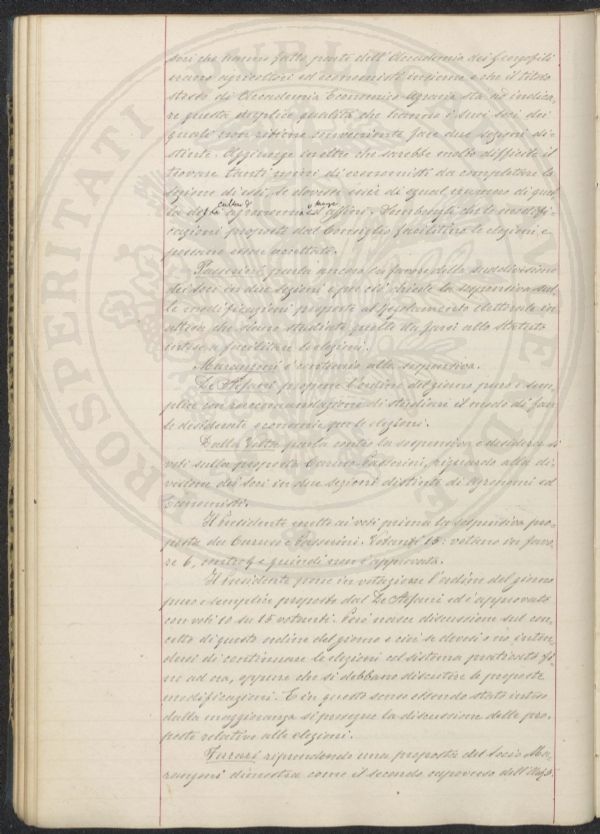 soci che hanno fatto parte dell'Accademia dei Georgofili
erano agricoltori ed economisti insieme e che il titolo
stesso di Accademia Economico Agraria sta ad indica-
re questa duplice qualità che hanno i suoi soci dei
quali non ritiene conveniente fare due sezioni di-
stinte. Aggiunge inoltre che sarebbe molto difficile il
trovare tanti nomi di economisti da completare la
sezione di essi, se dovesse esser di egual numero di quel-
la dei cultori di agronomia ed affini. Sembragli che le modifi-
cazioni proposte dal Consiglio facilitino le elezioni e
possano esser accettate.
Passerini parla ancora in favore della suddivisione
dei soci in due sezioni e per ciò chiede la sospensiva sul-
le modificazioni proposte al Regolamento elettorale in
attesa che siano studiate quelle da farsi allo Statuto
intese a facilitare le elezioni.
Marangoni è contrario alla sospensiva.
De Stefani propone l'ordine del giorno puro e sem-
plice con raccomandazione di studiare il modo di fare
le desiderate economie per le elezioni.
Dalla Volta parla contro la sospensiva e desidera si
voti sulla proposta Caruso Passerini, riguardo alla di-
visione dei soci in due sezioni distinte di Agronomi ed
Economisti.
Il Presidente mette ai voti prima la sospensiva pro-
posta da Caruso e Passerini. Votanti 15: votano in favo-
re 6, contro 9 e quindi non è approvata.
Il Presidente pone in votazione l'ordine del giorno
puro e semplice proposto dal De Stefani ed è approvato
con voti 10 su 15 votanti. Però nasce discussione sul con-
cetto di questo ordine del giorno e cioè se devesi o no inten-
dersi di continuare le elezioni col sistema praticato fi-
no ad ora, oppure che si debbano discutere le proposte
modificazioni. E in questo senso essendo stato inteso
dalla maggioranza si prosegue la discussione delle pro-
poste relative alle elezioni.
Ferrari riprendendo una proposta del Socio Ma-
rangoni dimostra come il secondo capoverso dell'Art.
PROSPERITATI